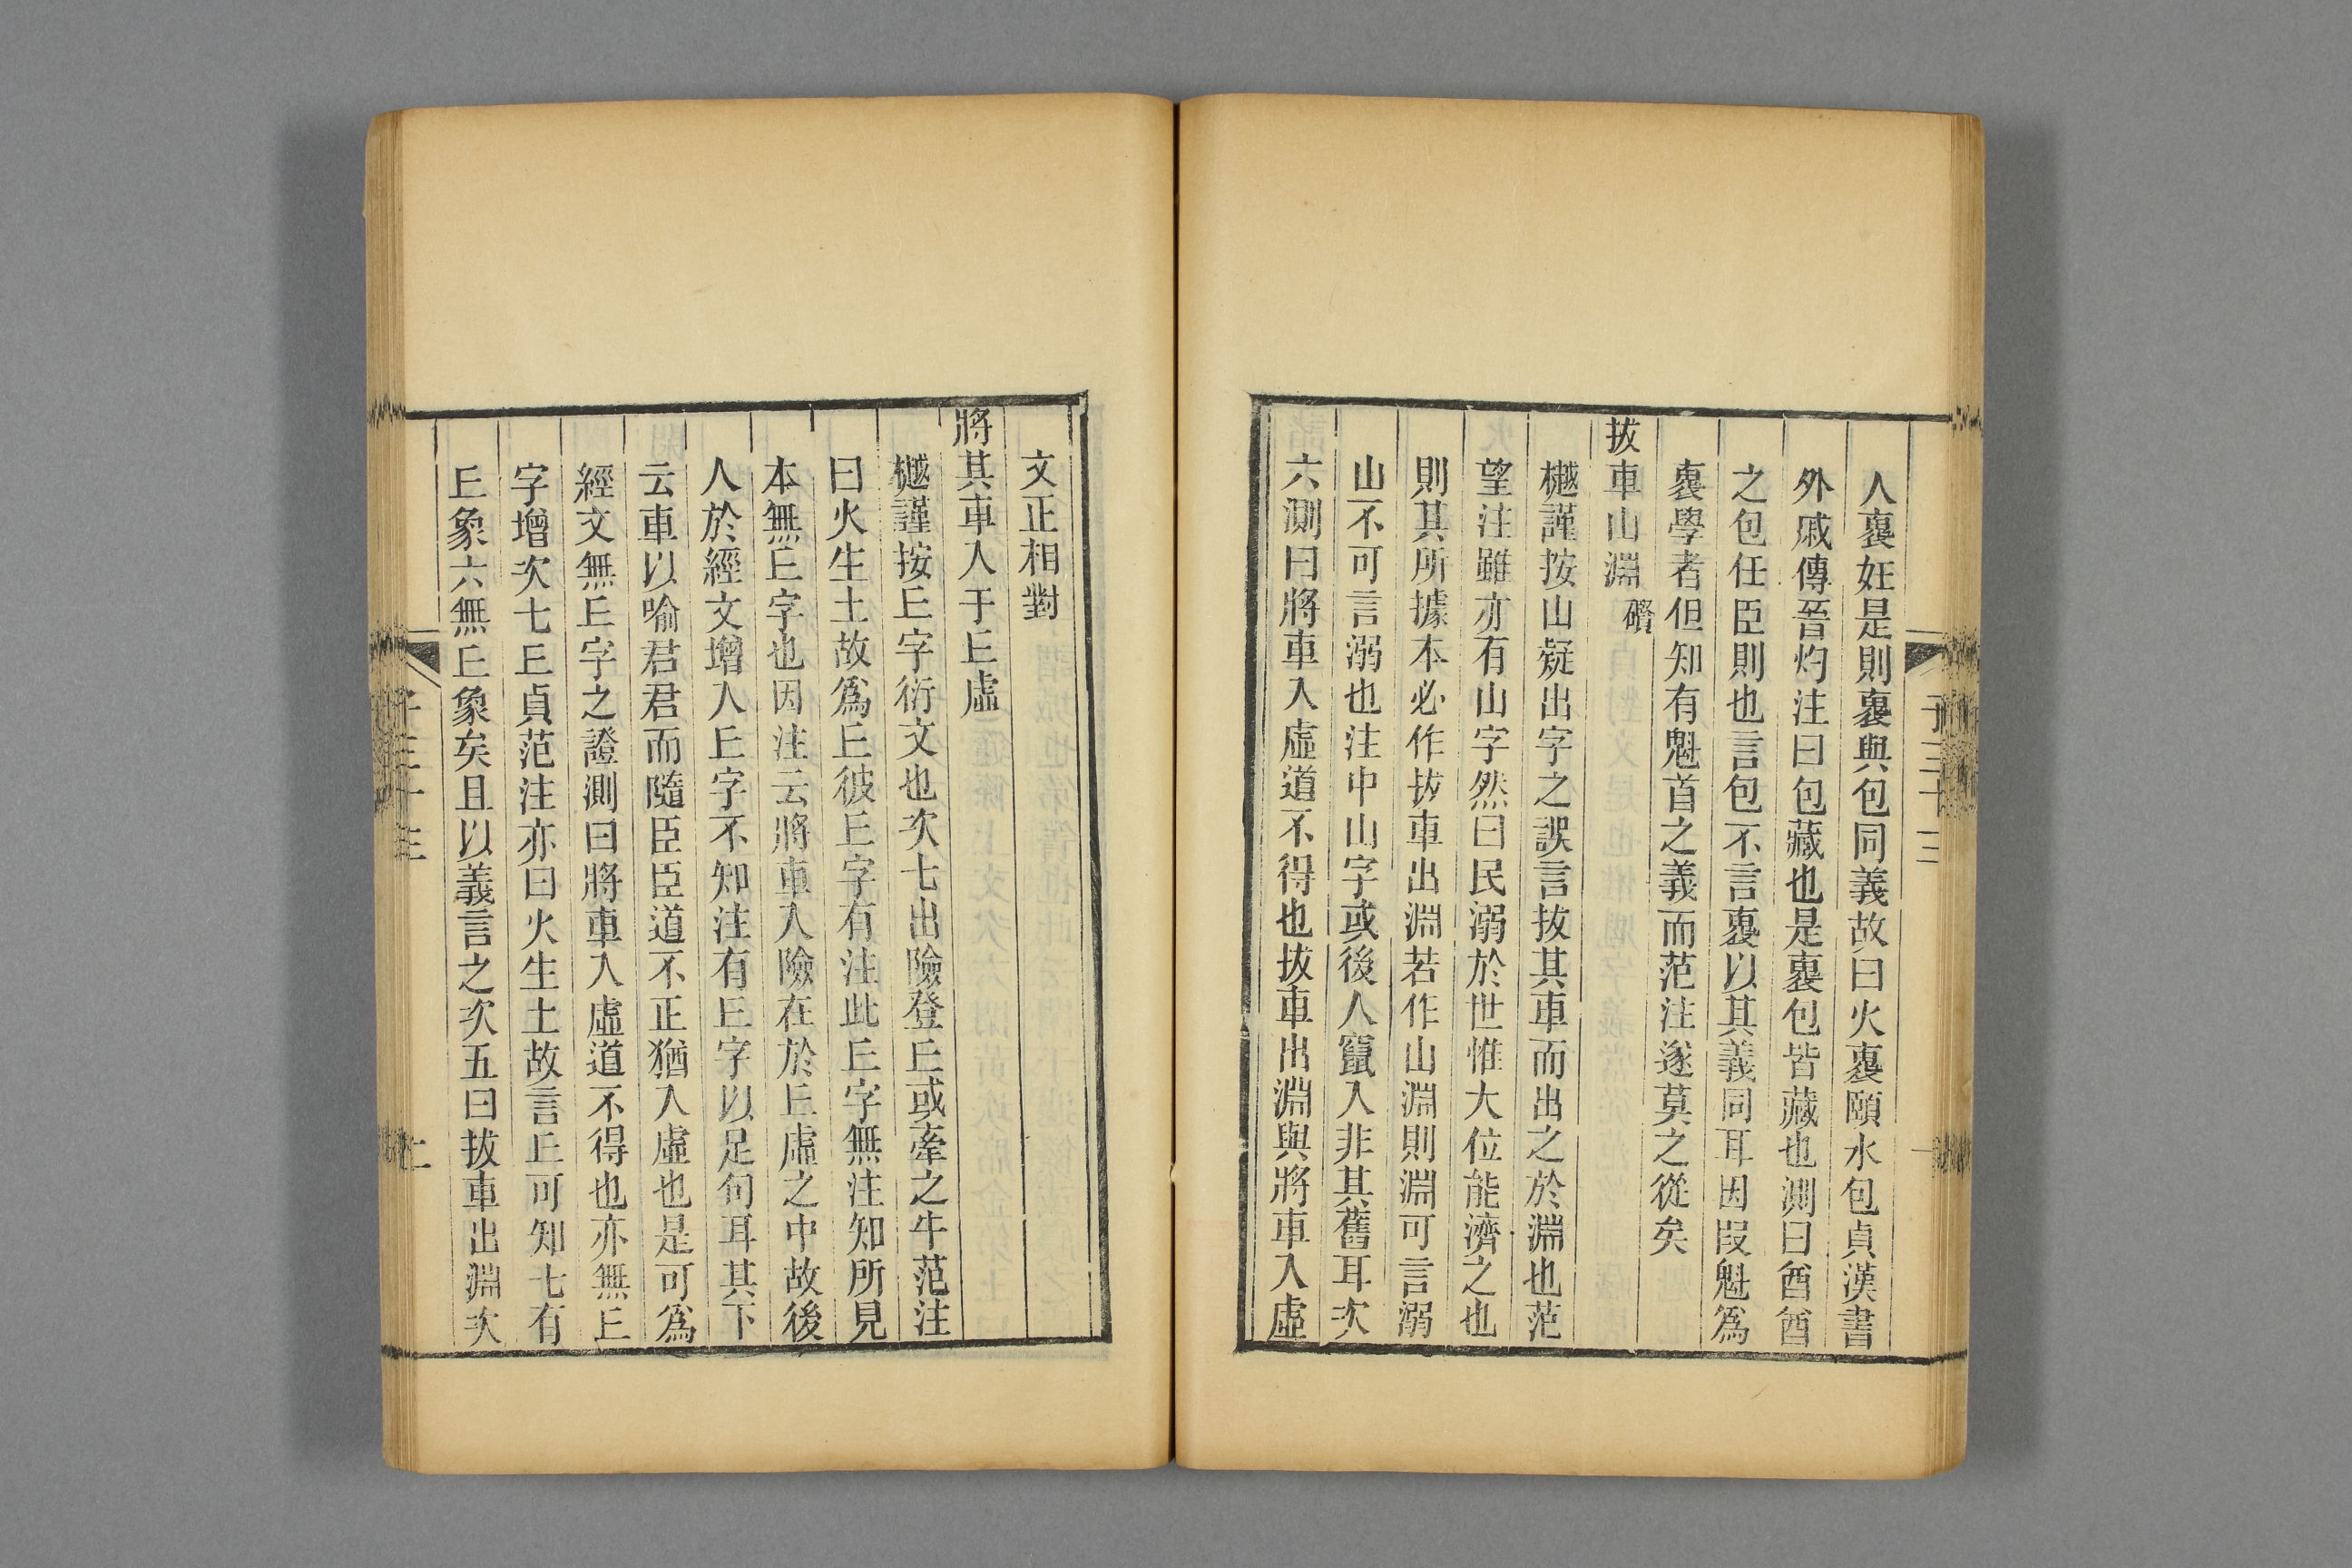 人裹妊是則裹與包同義故曰火裹頤水包貞漢書
外戚傳晉灼注曰包藏也是裹包皆藏也測曰酋酋
之包任臣則也言包不言裹以其義同耳因段魁爲
裹學者但知有魁首之義而范注遂莫之從矣
拔車山淵 礥
樾謹按山疑出字之誤言拔其車而出之於淵也范
望注雖亦有山字然曰民溺於世惟大位能濟之也
則其所據本必作拔車出淵若作山淵則淵可言溺
山不可言溺也注中山字或後人竄入非其舊耳次
六測曰將車入虛道不得也拔車出淵與將車入虛
文正相對
將其車入于𠀉虛
樾謹按𠀉字衍文也次七出險登𠀉或牽之牛范注
曰火生土故爲𠀉彼𠀉字有注此𠀉字無注知所見
本無𠀉字也因注云將車入險在於𠀉虛之中故後
人於經文增入𠀉字不知注有𠀉字以足句耳其下
云車以喻君君而隨臣臣道不正猶入虛也是可爲
經文無𠀉字之證測曰將車入虛道不得也亦無𠀉
字增次七𠀉貞范注亦曰火生土故言𠀉可知七有
𠀉象六無𠀉象矣且以義言之次五曰拔車出淵次